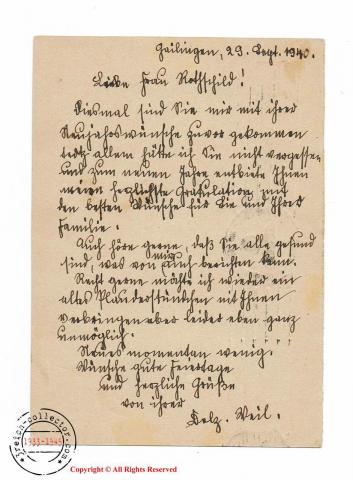 Gailingen, 29. Sept. 1940.
Liebe Frau Rothschild!
Diesmal sind Sie mir mit ihrer
Neujahrswünsche zuvor gekommen
trotz allem hätte ich Sie nicht vergessen
und zum neuen Jahre entbiete Ihnen
meine herzlichste Gratulation, mit
den besten Wünsche für Sie und Ihrer
Familie.
Auch höre gerne, daß Sie alle gesund
sind, was von auch berichten kann.
mir
Recht gerne möchte ich wieder ein
altes Plauderstündchen mit Ihnen
verbringen aber leider eben ganz
unmöglich.
Neues momentan wenig.
Wünsche gute Feiertage
und herzliche Grüße
von ihrer
Weil.
reich-collector.com
1933-1945
Copyright © All Rights Reserved